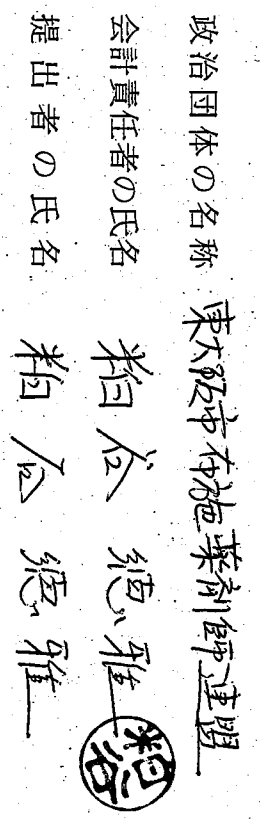 政治団体の名称 東大阪市布施薬剤師連盟
会計責任者の氏名 粕谷 雅 粕谷
提出者の氏名 粕谷 雅